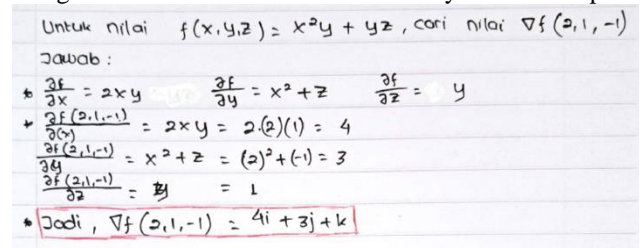 Untuk nilai f(x,y,z) = x²y + yz, cari nilai ∇f(2,1,-1)
Jawab :
* ∂f/∂x = 2xy ∂f/∂y = x² + z ∂f/∂z = y
* ∂f(2,1,-1)/∂(x) = 2xy = 2.(2)(1) = 4
∂f(2,1,-1)/∂y = x² + z = (2)² + (-1) = 3
∂f(2,1,-1)/∂z = y = 1
* Jadi, ∇f(2,1,-1) = 4i + 3j + k